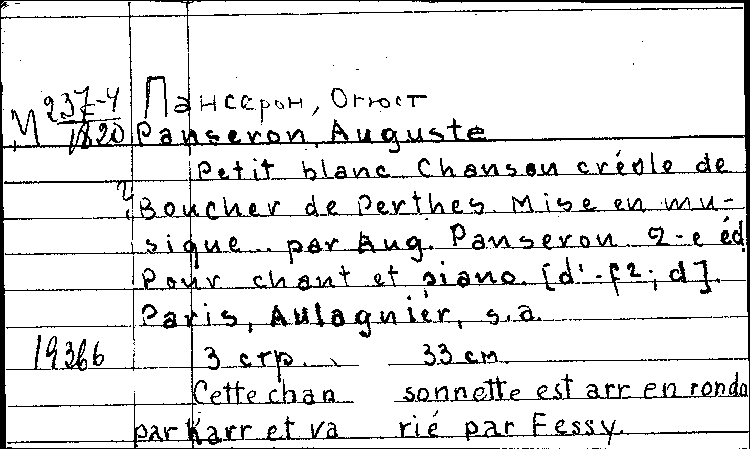 M 237-4/1820 Пансерон, Огюст
Panseron, Auguste
Petit blanc Chanson créole de
Boucher de Perthes. Mise en mu-
sique.. par Aug. Panseron. 2-e éd
Pour chant et piano. [d'-f2; d].
Paris, Aulagnier, s.a.
19366 3 стр. 33 см.
Cette chan sonnette est arr en rondo
par Karr et va rié par Fessy.